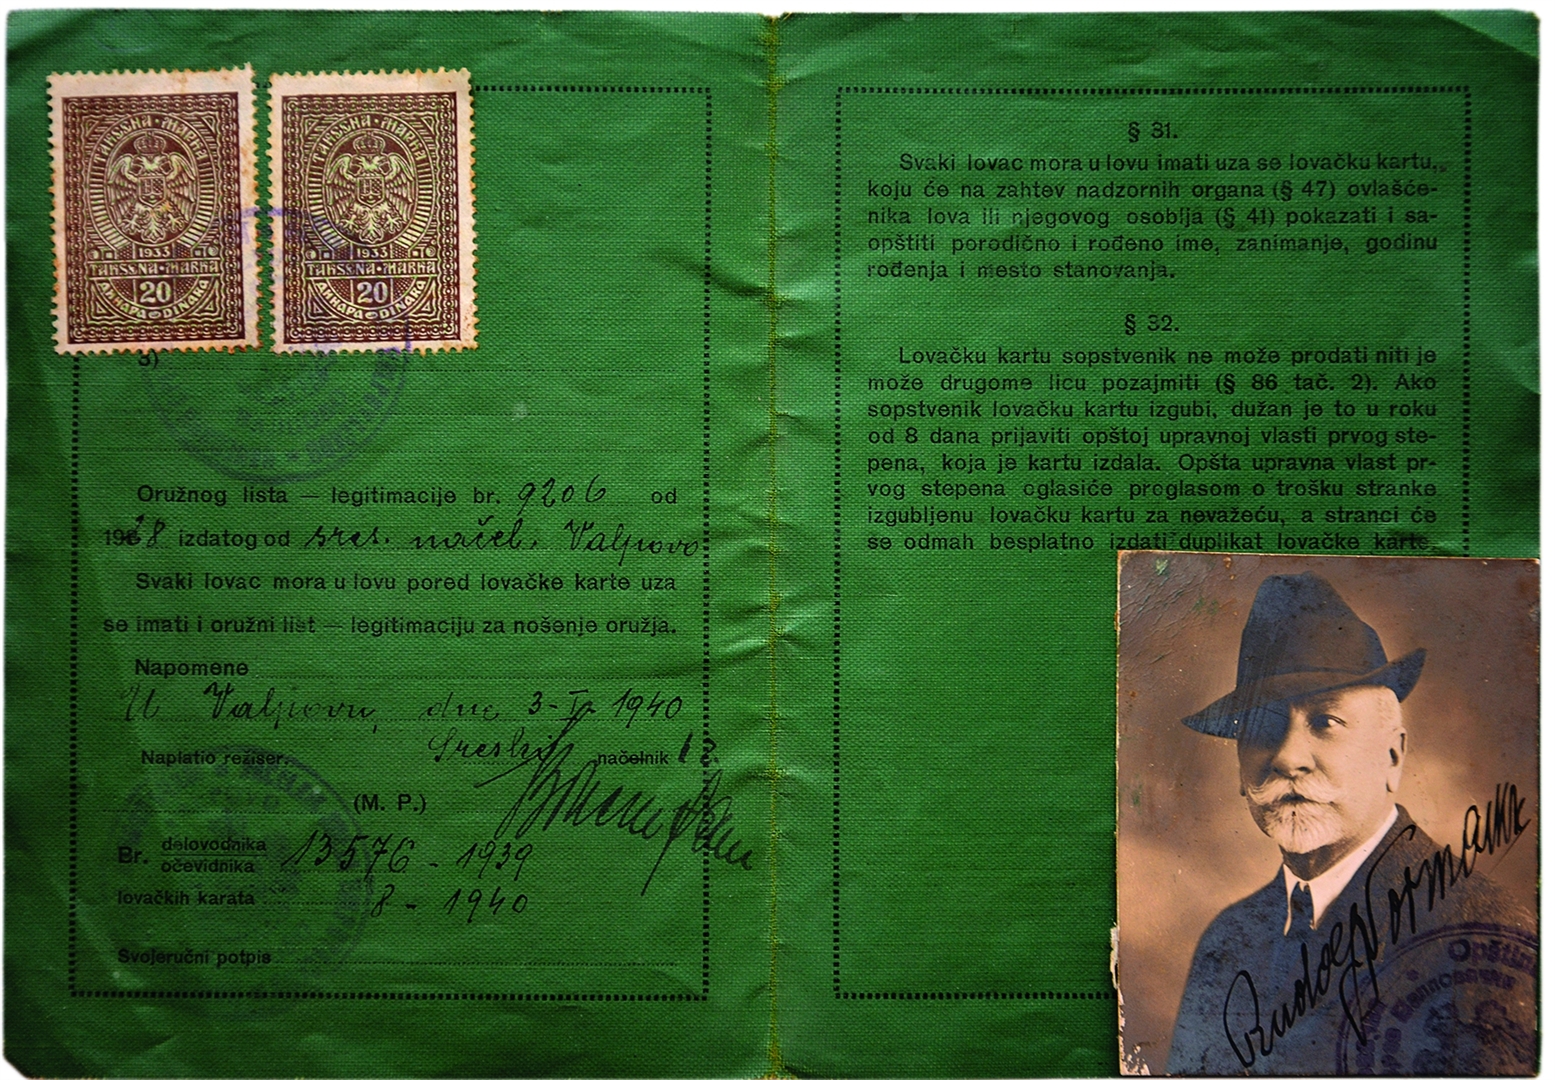 1933
TAKSENA·MARKA
20
DINARA
1933
TAKSENA·MARKA
20
DINARA
3)
Oružnog lista — legitimacije br. 9206 od
1938 izdatog od sres. načel. Valpovo
Svaki lovac mora u lovu pored lovačke karte uza
se imati i oružni list — legitimaciju za nošenje oružja.
Napomene
U Valpovu, dne 3-I- 1940
Naplatio režiser: Sreski načelnik
(M. P.)
Br. delovodnika
očevidnika 13576 - 1939
lovačkih karata 8 - 1940
Svojeručni potpis
§ 31.
Svaki lovac mora u lovu imati uza se lovačku kartu,
koju će na zahtev nadzornih organa (§ 47) ovlašće-
nika lova ili njegovog osoblja (§ 41) pokazati i sa-
opštiti porodično i rođeno ime, zanimanje, godinu
rođenja i mesto stanovanja.
§ 32.
Lovačku kartu sopstvenik ne može prodati niti je
može drugome licu pozajmiti (§ 86 tač. 2). Ako
sopstvenik lovačku kartu izgubi, dužan je to u roku
od 8 dana prijaviti opštoj upravnoj vlasti prvog ste-
pena, koja je kartu izdala. Opšta upravna vlast pr-
vog stepena oglasiće proglasom o trošku stranke
izgubljenu lovačku kartu za nevažeću, a stranci će
se odmah besplatno izdati duplikat lovačke karte.
Rudolf Normann